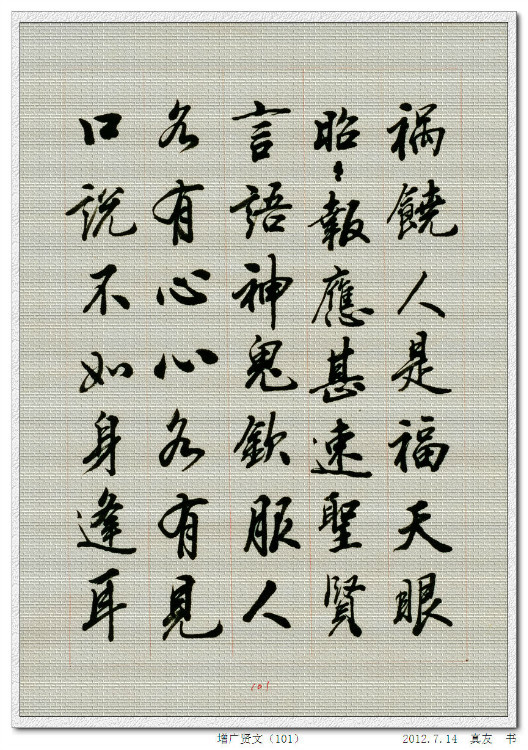 祸饒人是福天眼
昭〻報應甚速聖賢
言語神鬼欽服人
各有心心各有見
口說不如身逢耳
101
增广贤文（101）
2012.7.14 真友 书